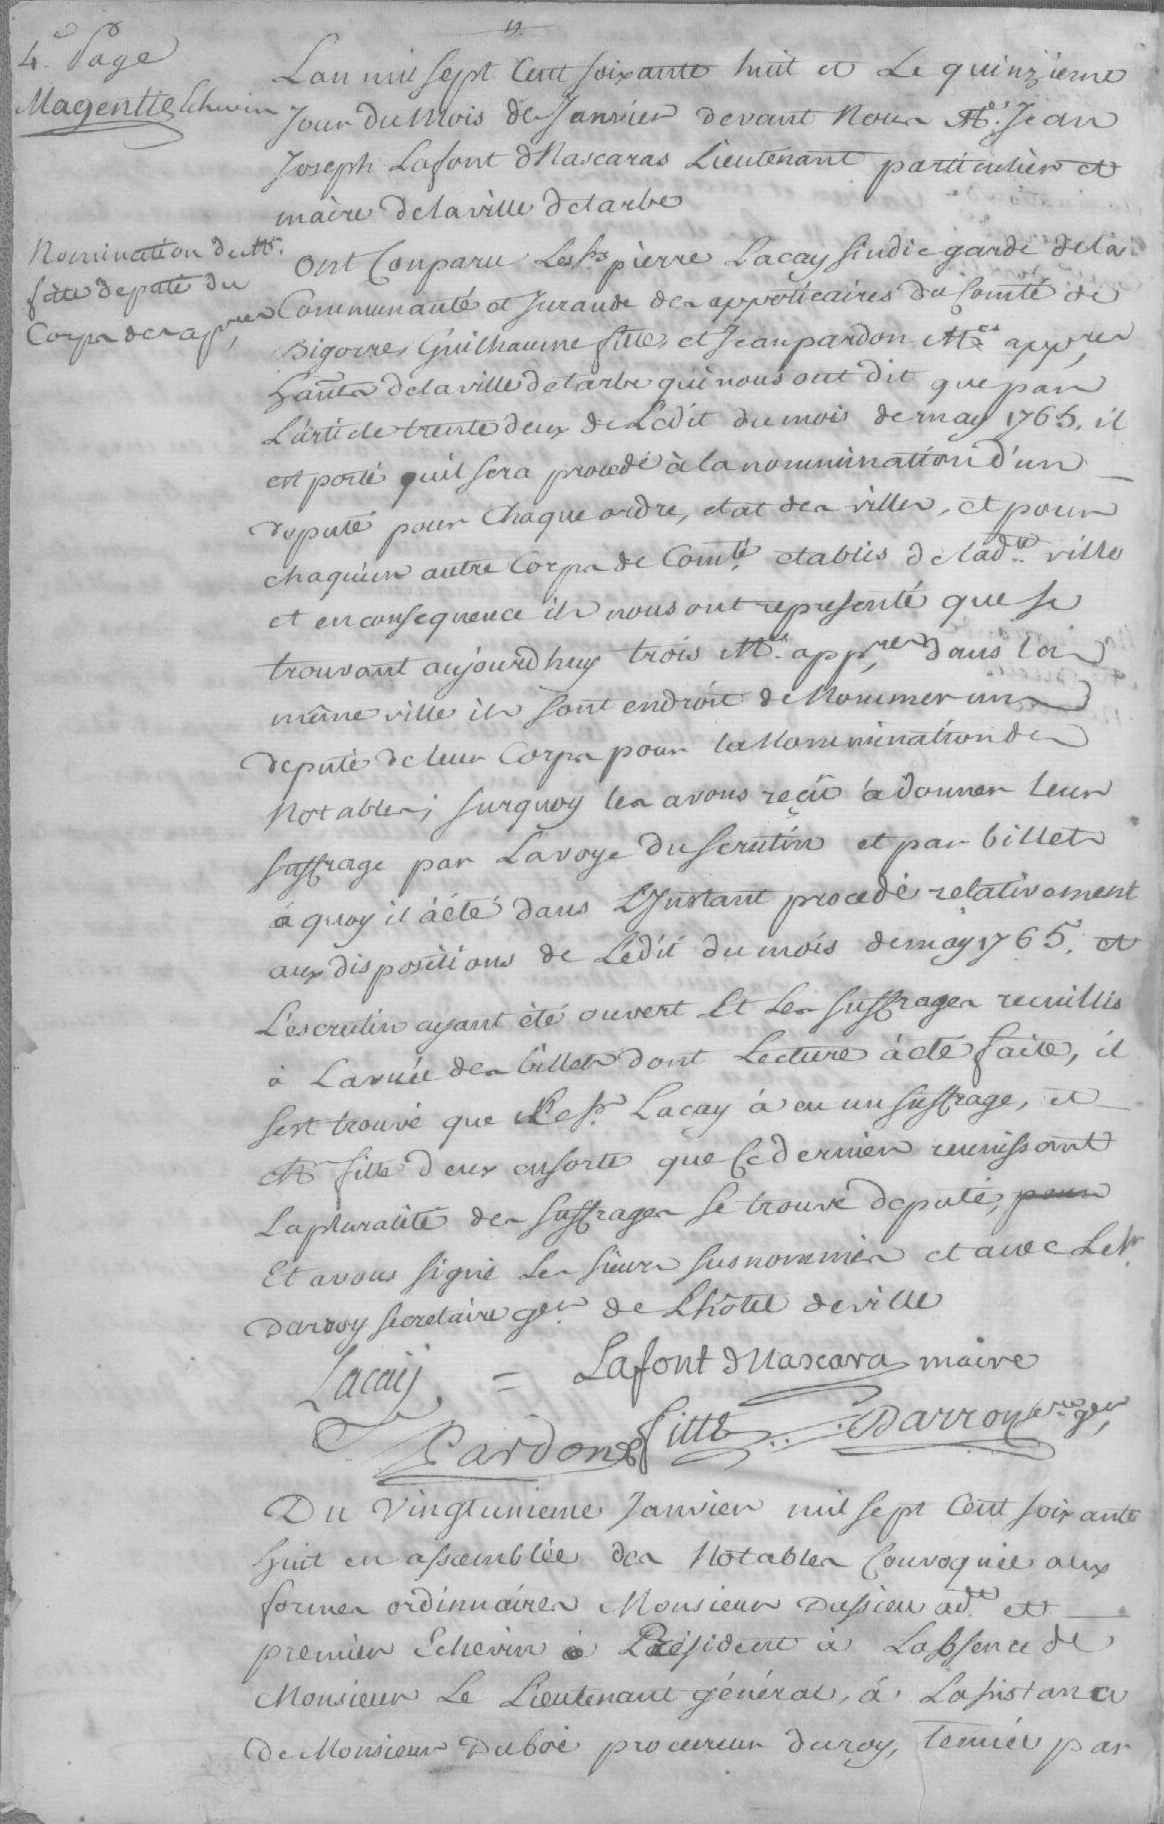 4.e Page
Magentie Echevin
Lan mil sept Cent soixante huit et Le quinzieme
Jour du Mois de Janvier devant Nous Mr. Jean
Joseph Lafont dNascaras Lieutenant particulier et
maire de la ville de tarbe
Nomination de Mr.
fitte deputé du
Corps des ap.res
ont Conparu Les srs pierre Lacay sindic garde de la
Communauté et Jurande des appoticaires du Comté de
Bigorre, Guilhaume fitte, et Jean pardon Mes app.res
hants de la ville de tarbe qui nous ont dit que par
L'article trente deux de L'edit du mois de may 1765. il
est porté quil sera procedé à la nommination d'un
deputé pour Chaque ordre, etat des villes, et pour
chaquun autre Corps de Comté etablis de lade. ville
et en consequence ils nous ont representé que se
trouvant aujourdhuy trois Mes. app.res dans la
même ville ils sont endroit de Nommer un
deputé de leur Corps pour la Nommination des
Notables; surquoy les avons reçu à donner leur
suffrage par La voye du scrutin et par billets
à quoy il à été dans L'Instant procedé relativement
aux dispositions de Ledit du mois de may 1765. et
L'escrutin ayant été ouvert Et Les suffrages recuillis
à La vuée des billets dont Lecture à été faite, il
sest trouvé que Le sr. Lacay à eu un suffrage, et
Mr fitte deux ensorte que Ce dernier reunissant
La pluralité des suffrages se trouve deputé, pour
Et avons signé Les sieurs susnommés et avec Le sr.
Darroy secretaire ger. de Lhôtel de ville
Lacaij = Lafont dNascara maire
Pardon fitte Darroy sre. ger,
Du Vingtunieme Janvier mil sept Cent soixante
huit en assemblée des Notables Convoquée aux
formes ordinnaires Monsieur Dussieu adt. et
premier Echevin Président à Labsence de
Monsieur Le Lieutenant général, à Lasistance
De Monsieur Duboé procureur du roy, tenüe par